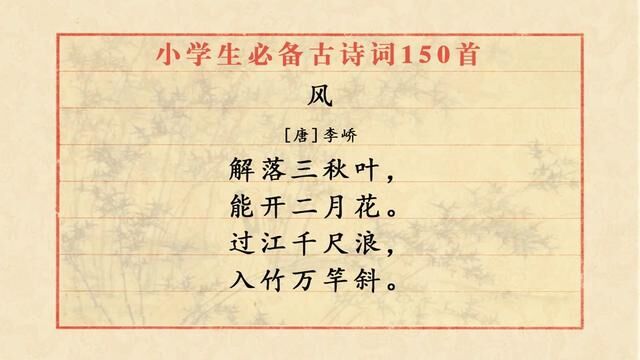 小学生必备古诗词150首
风
[唐]李峤
解落三秋叶，
能开二月花。
过江千尺浪，
入竹万竿斜。